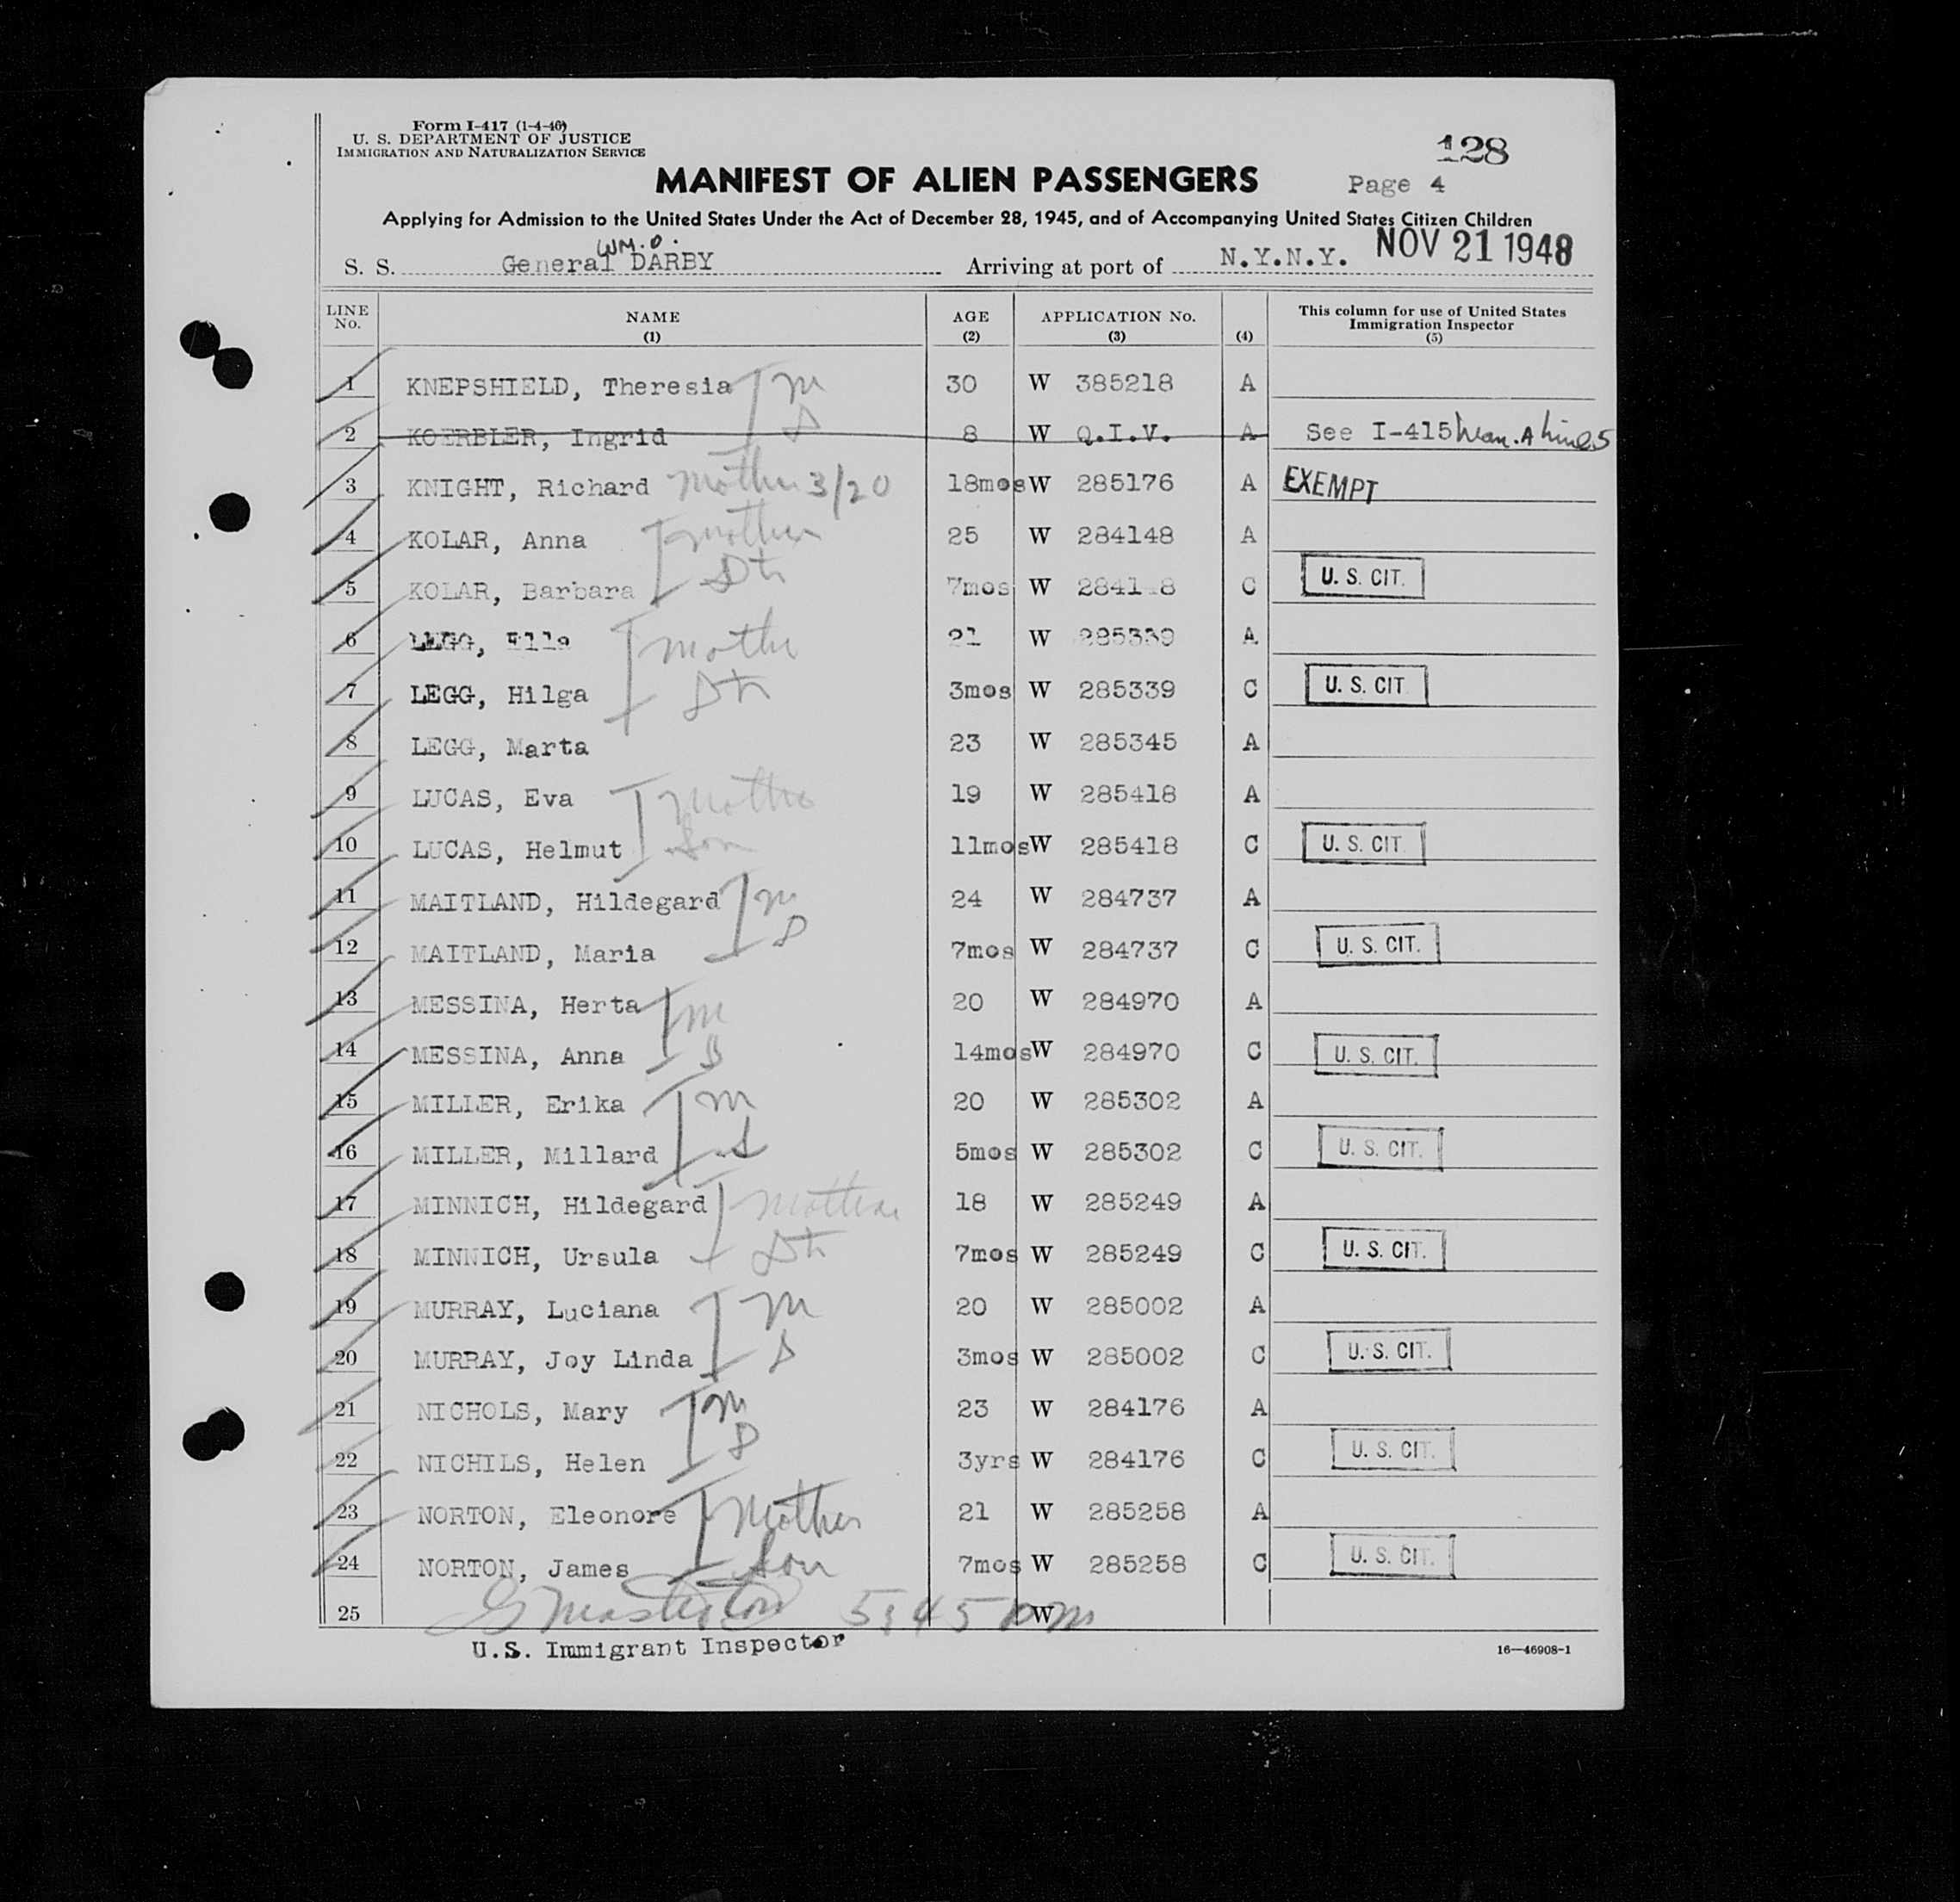 Form I-417 (1-4-46)
U. S. DEPARTMENT OF JUSTICE
IMMIGRATION AND NATURALIZATION SERVICE
128
MANIFEST OF ALIEN PASSENGERS
Page 4
Applying for Admission to the United States Under the Act of December 28, 1945, and of Accompanying United States Citizen Children
WM. O.
S. S. General DARBY Arriving at port of N.Y.N.Y. NOV 21 1948
LINE No. NAME (1) AGE (2) APPLICATION No. (3) (4) This column for use of United States Immigration Inspector (5)
1 KNEPSHIELD, Theresia m 30 W 385218 A
2 KOERBLER, Ingrid D 8 W Q.I.V. A See I-415 Man. A Line 5
3 KNIGHT, Richard Mother 3/20 18mos W 285176 A EXEMPT
4 KOLAR, Anna mother 25 W 284148 A
5 KOLAR, Barbara Dtr 7mos W 2841 8 C U. S. CIT.
6 LEGG, Ella mother 21 W 285339 A
7 LEGG, Hilga Dtr 3mos W 285339 C U. S. CIT
8 LEGG, Marta 23 W 285345 A
9 LUCAS, Eva Mother 19 W 285418 A
10 LUCAS, Helmut Son 11mos W 285418 C U. S. CIT
11 MAITLAND, Hildegard m 24 W 284737 A
12 MAITLAND, Maria D 7mos W 284737 C U. S. CIT.
13 MESSINA, Herta m 20 W 284970 A
14 MESSINA, Anna D 14mos W 284970 C U. S. CIT.
15 MILLER, Erika m 20 W 285302 A
16 MILLER, Millard S 5mos W 285302 C U. S. CIT.
17 MINNICH, Hildegard Mother 18 W 285249 A
18 MINNICH, Ursula Dtr 7mos W 285249 C U. S. CIT.
19 MURRAY, Luciana m 20 W 285002 A
20 MURRAY, Joy Linda D 3mos W 285002 C U. S. CIT.
21 NICHOLS, Mary m 23 W 284176 A
22 NICHILS, Helen D 3yrs W 284176 C U. S. CIT.
23 NORTON, Eleonore Mother 21 W 285258 A
24 NORTON, James Son 7mos W 285258 C U. S. CIT.
25 W 5:45 pm
U.S. Immigrant Inspector
16—46908-1